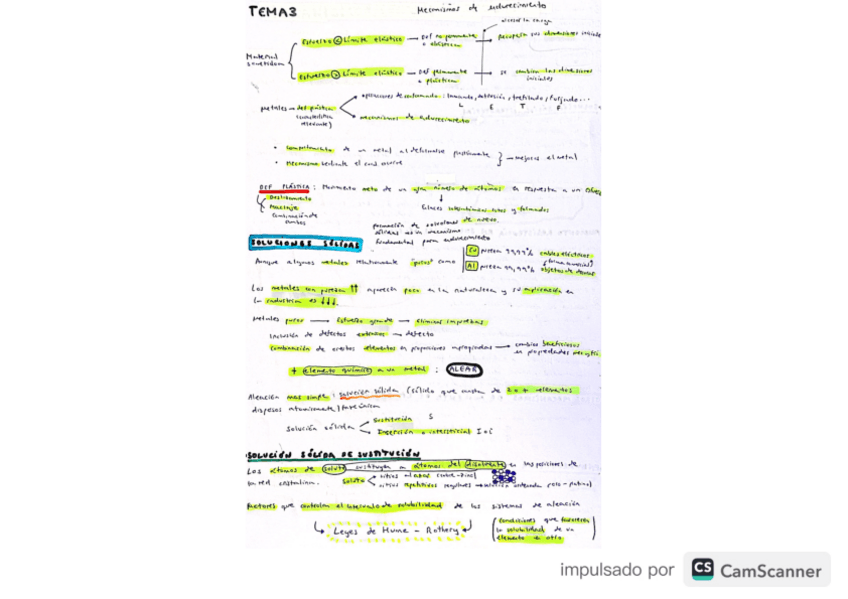 TEMA3 Mecanismos de endurecimiento
alcanzar la carga
Esfuerzo < Límite elástico → Def no permanente → Recupera sus dimensiones iniciales
o elástica
Material sometido
Esfuerzo > Límite elástico → Def permanente → se cambian las dimensiones
o plástica iniciales
operaciones de conformado: laminado, extrusión, trefilado, forjado...
L E T F
Metales → def plástica
(característica
relevante) mecanismos de endurecimiento
• Comportamiento de un metal al deformarse plásticamente
} → mejorar el metal
• Mecanismo mediante el cual ocurre
DEF PLÁSTICA: Movimiento neto de un gran número de átomos en respuesta a un
Deslizamiento
Maclaje Enlaces interatómicos rotos y formados
Combinación de
ambos
formación de soluciones de
sólidas es un mecanismo
fundamental para endurecimiento
SOLUCIONES SÓLIDAS
Cu pureza 99,99% cables eléctricos
Aunque algunos metales relativamente "puros" como
Al pureza 99,99% objetos de
Los metales con pureza ↑↑ aparecen poco en la naturaleza y su aplicación en
la industria es ↓↓↓.
Metales puros → Esfuerzo grande → Eliminar impurezas
Inclusión de defectos extraños → defecto
Combinación de ciertos elementos en proporciones apropiadas → cambios beneficiosos
en propiedades
+ elemento químico a un metal : ALEAR
Aleación más simple : solución sólida (sólido que consta de 2 o + elementos
dispersos atómicamente)
Solución sólida Sustitución S
Inserción o intersticial I o i
SOLUCIÓN SÓLIDA DE SUSTITUCIÓN
Los átomos de soluto sustituyen a átomos del disolvente en las posiciones de
la red cristalina. Soluto sitios al azar
sitios repetitivos regulares → solución ordenada
Factores que controlan el intervalo de solubilidad de los sistemas de aleación
Leyes de Hume - Rothery
(condiciones que favorecen
la solubilidad de un
elemento + otro)
impulsado por CS CamScanner